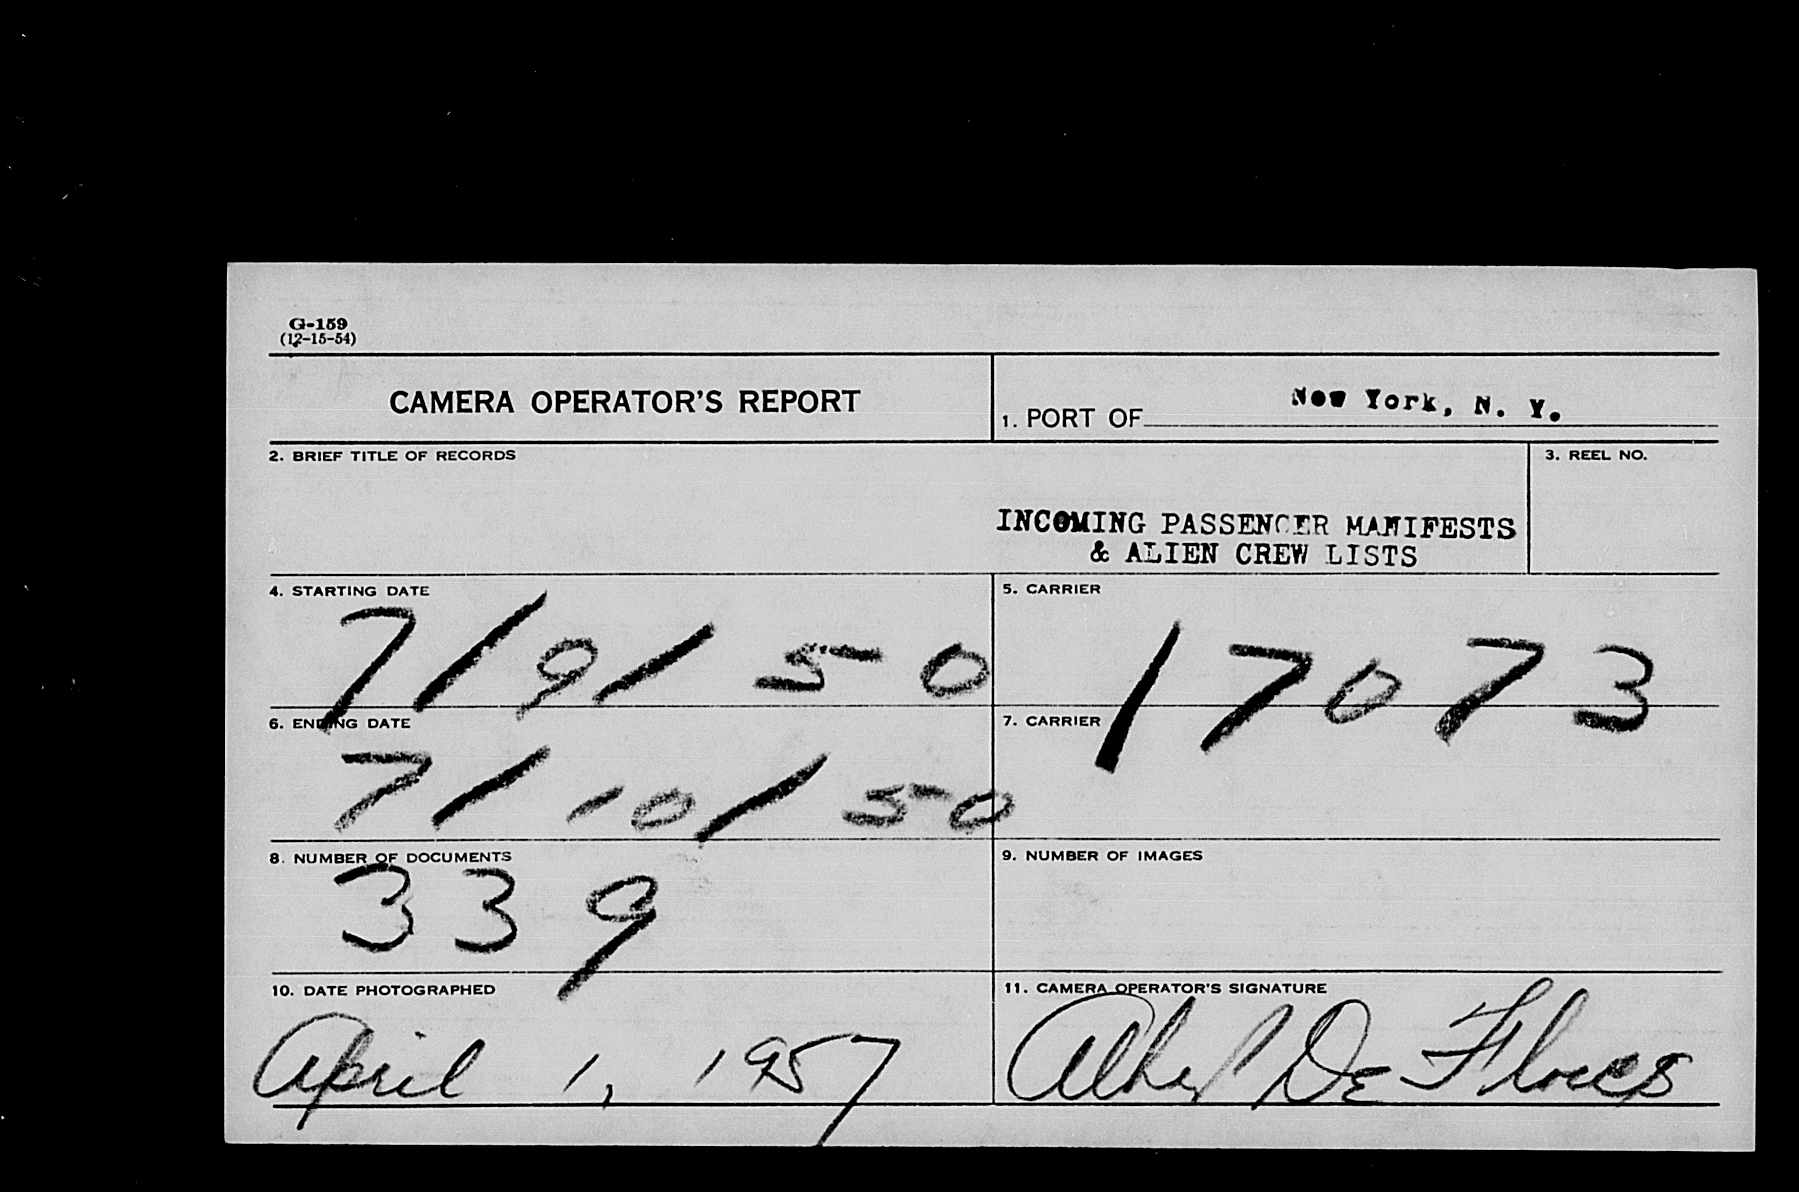 G-159
(12-15-54)
CAMERA OPERATOR'S REPORT
1. PORT OF New York, N. Y.
2. BRIEF TITLE OF RECORDS
3. REEL NO.
INCOMING PASSENGER MANIFESTS
& ALIEN CREW LISTS
4. STARTING DATE
7/9/50
5. CARRIER
17073
6. ENDING DATE
7/10/50
7. CARRIER
8. NUMBER OF DOCUMENTS
339
9. NUMBER OF IMAGES
10. DATE PHOTOGRAPHED
April 1, 1957
11. CAMERA OPERATOR'S SIGNATURE
De Flores